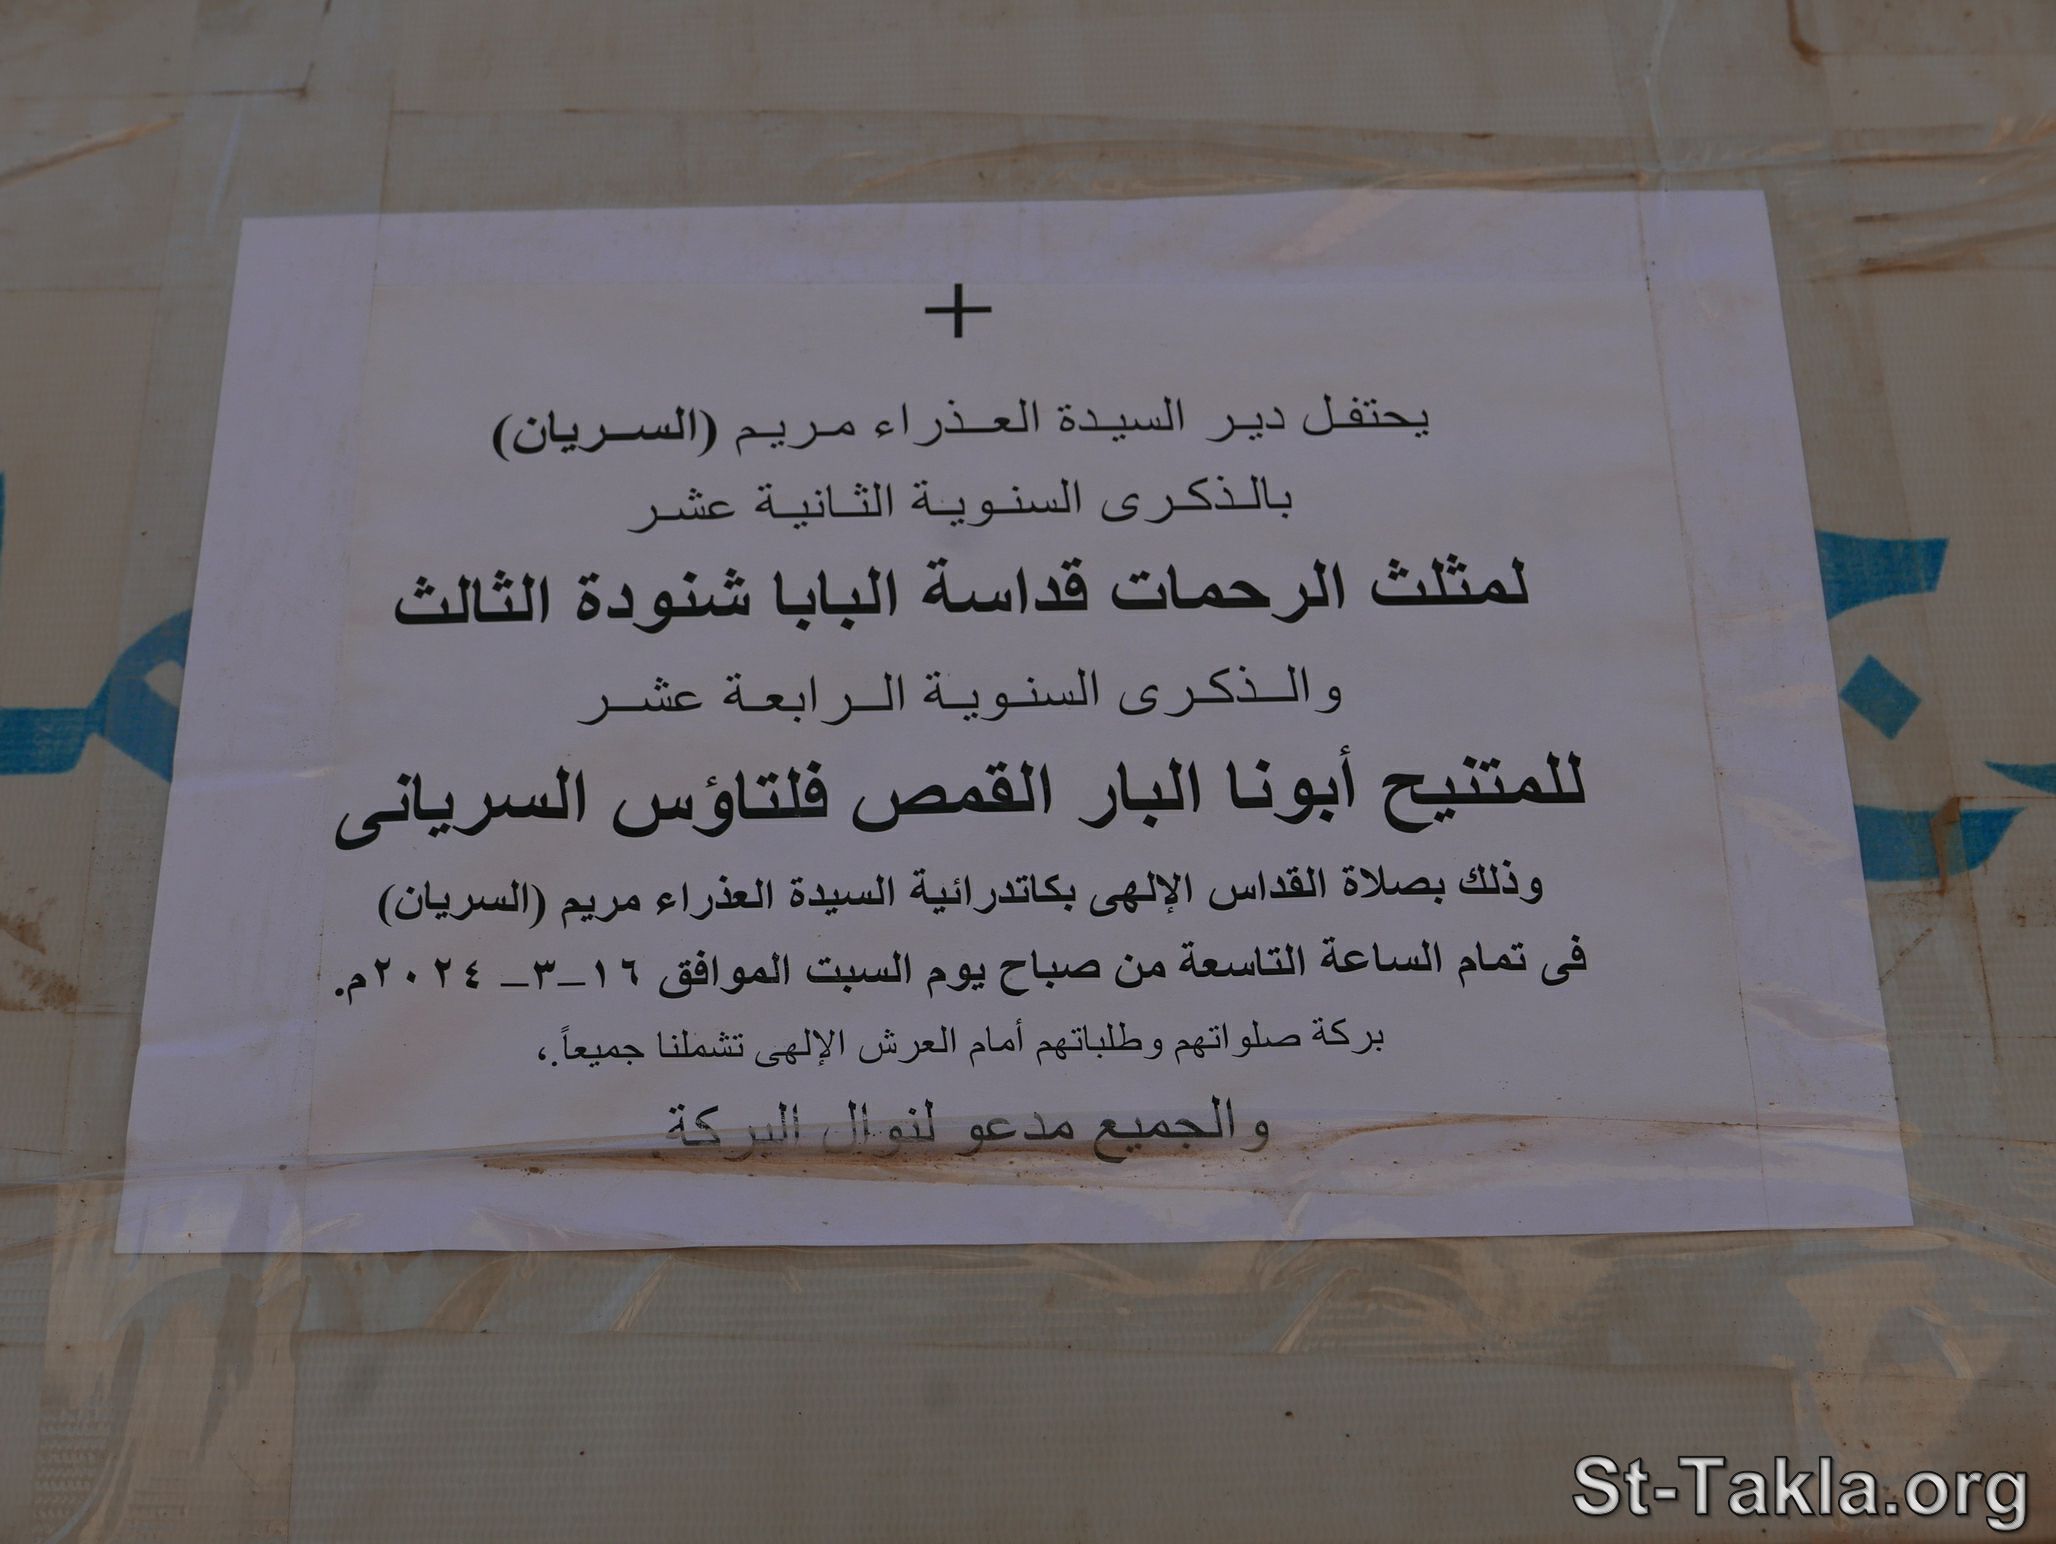 +
يحتفل دير السيدة العذراء مريم (السريان)
بالذكرى السنوية الثانية عشر
لمثلث الرحمات قداسة البابا شنودة الثالث
والذكرى السنوية الرابعة عشر
للمتنيح أبونا البار القمص فلتاؤس السريانى
وذلك بصلاة القداس الإلهى بكاتدرائية السيدة العذراء مريم (السريان)
فى تمام الساعة التاسعة من صباح يوم السبت الموافق ١٦_٣_ ٢٠٢٤م.
بركة صلواتهم وطلباتهم أمام العرش الإلهى تشملنا جميعاً.،
والجميع مدعو لنوال البركة
St-Takla.org